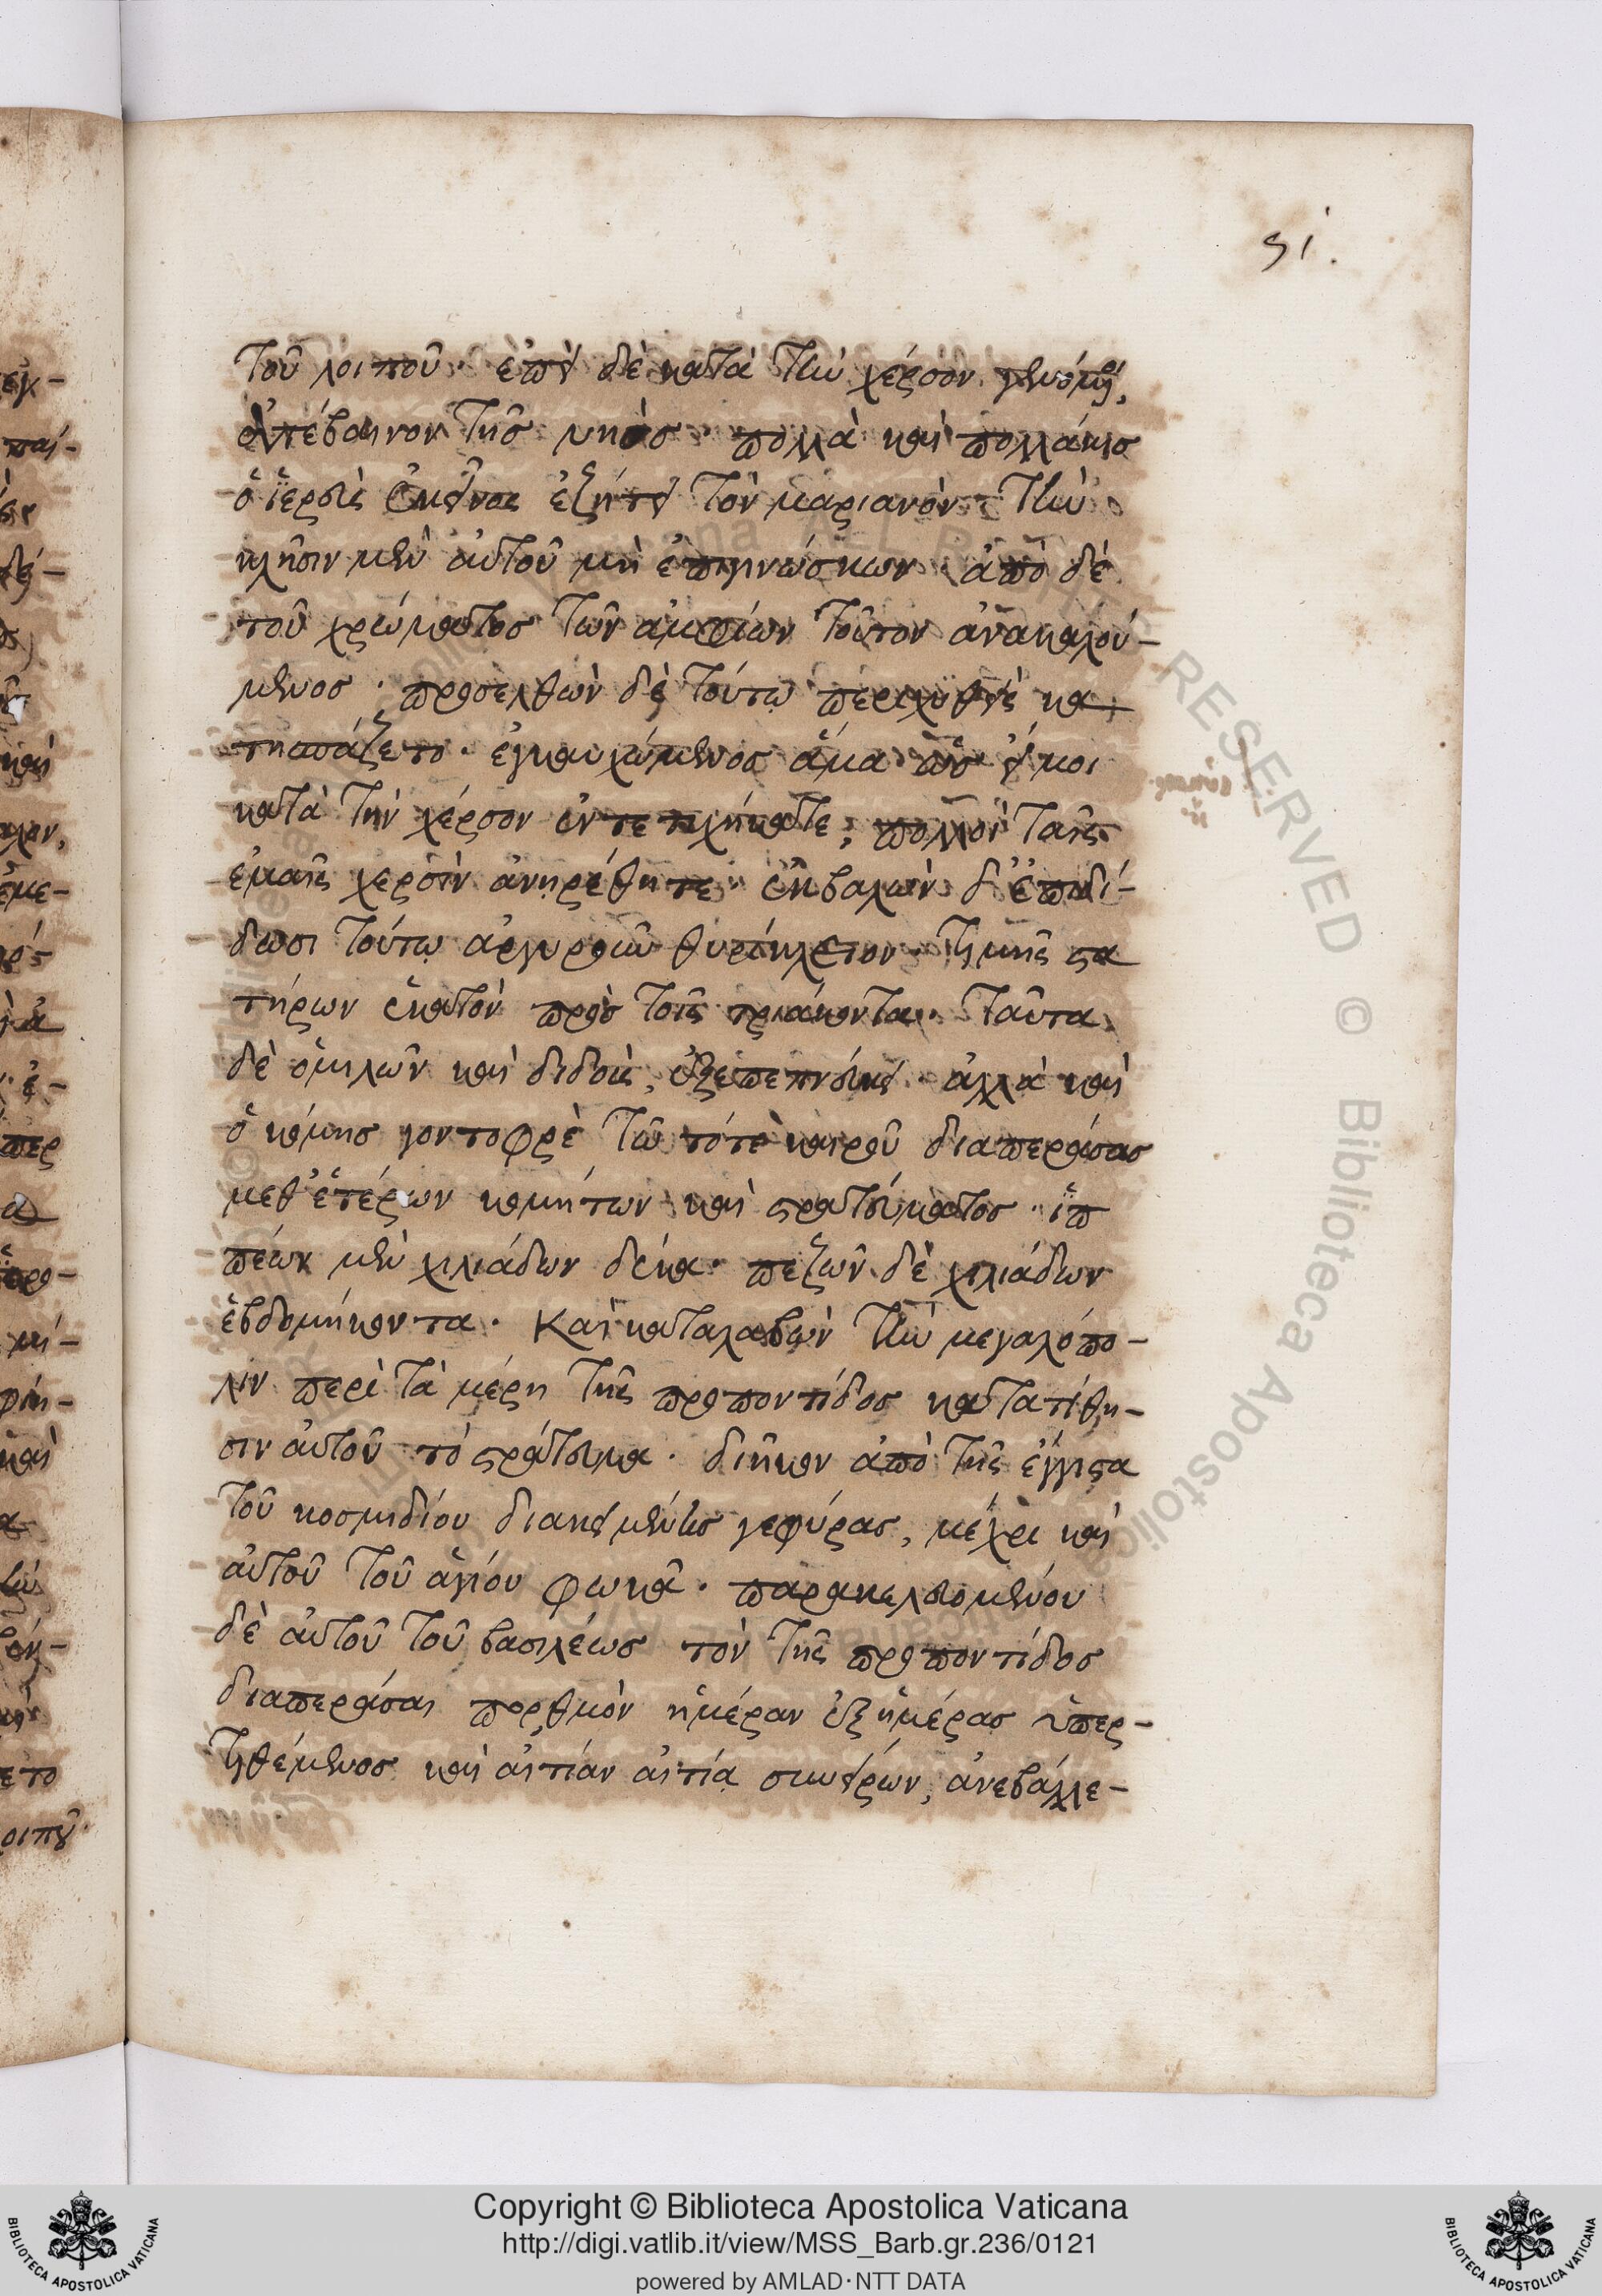 ϛι.
τοῦ λοιποῦ· ἐπεὶ δὲ κατὰ τὴν χέρσον γενόμενοι,
ἀπέβαινον τῆς νηὸς· πολλὰ καὶ πολλάκις
ὁ ἱερεὺς ἐκεῖνος ἐζήτει τὸν μαριανὸν· τὴν
κλῆσιν μὲν αὐτοῦ μὴ ἐπιγινώσκων· ἀπὸ δὲ
τοῦ χρώματος τῶν ἀμφίων τοῦτον ἀνακαλού-
μενος· προσελθὼν δὲ τούτῳ περιχυθεὶς κα
τησπάζετο· ἐγκαυχώμενος ἅμα ὡς εἴ μοι
κατὰ τὴν χέρσον ἐντετυχήκατε, πολλοὶ ταῖς
ἐμαῖς χερσὶν ἀνῃρέθητε· ἐκβαλὼν δ' ἐπιδί-
δωσι τούτῳ ἀργυροῦν θυρίκλειον· τιμῆς στα
τήρων ἑκατὸν πρὸς τοῖς τριάκοντα· ταῦτα
δὲ ὁμιλῶν καὶ διδοὺς, ἐξεπεπνεύκει· ἀλλὰ καὶ
ὁ κόμης γοντοφρὲ τῶ τότε καιροῦ διαπεράσας
μεθ' ἑτέρων κομήτων καὶ στρατεύματος ἱπ
πέων μὲν χιλιάδων δέκα· πεζῶν δὲ χιλιάδων
ἑβδομήκοντα· Καὶ καταλαβὼν τὴν μεγαλόπο-
λιν περὶ τὰ μέρη τῆς προποντίδος κατατίθη-
σιν αὐτοῦ τὸ στράτευμα· διῆκον ἀπὸ τῆς ἔγγιστα
τοῦ κοσμιδίου διακειμένης γεφύρας, μέχρι καὶ
αὐτοῦ τοῦ ἁγίου φωκᾶ· παρακελευομένου
δὲ αὐτοῦ τοῦ βασιλέως τὸν τῆς προποντίδος
διαπεράσαι πορθμὸν ἡμέραν ἐξ ἡμέρας ὑπερ-
τιθέμενος καὶ αἰτίαν αἰτίᾳ συνείρων, ἀνεβάλλε-
Copyright © Biblioteca Apostolica Vaticana
http://digi.vatlib.it/view/MSS_Barb.gr.236/0121
powered by AMLAD·NTT DATA
BIBLIOTECA APOSTOLICA VATICANA
BIBLIOTECA APOSTOLICA VATICANA